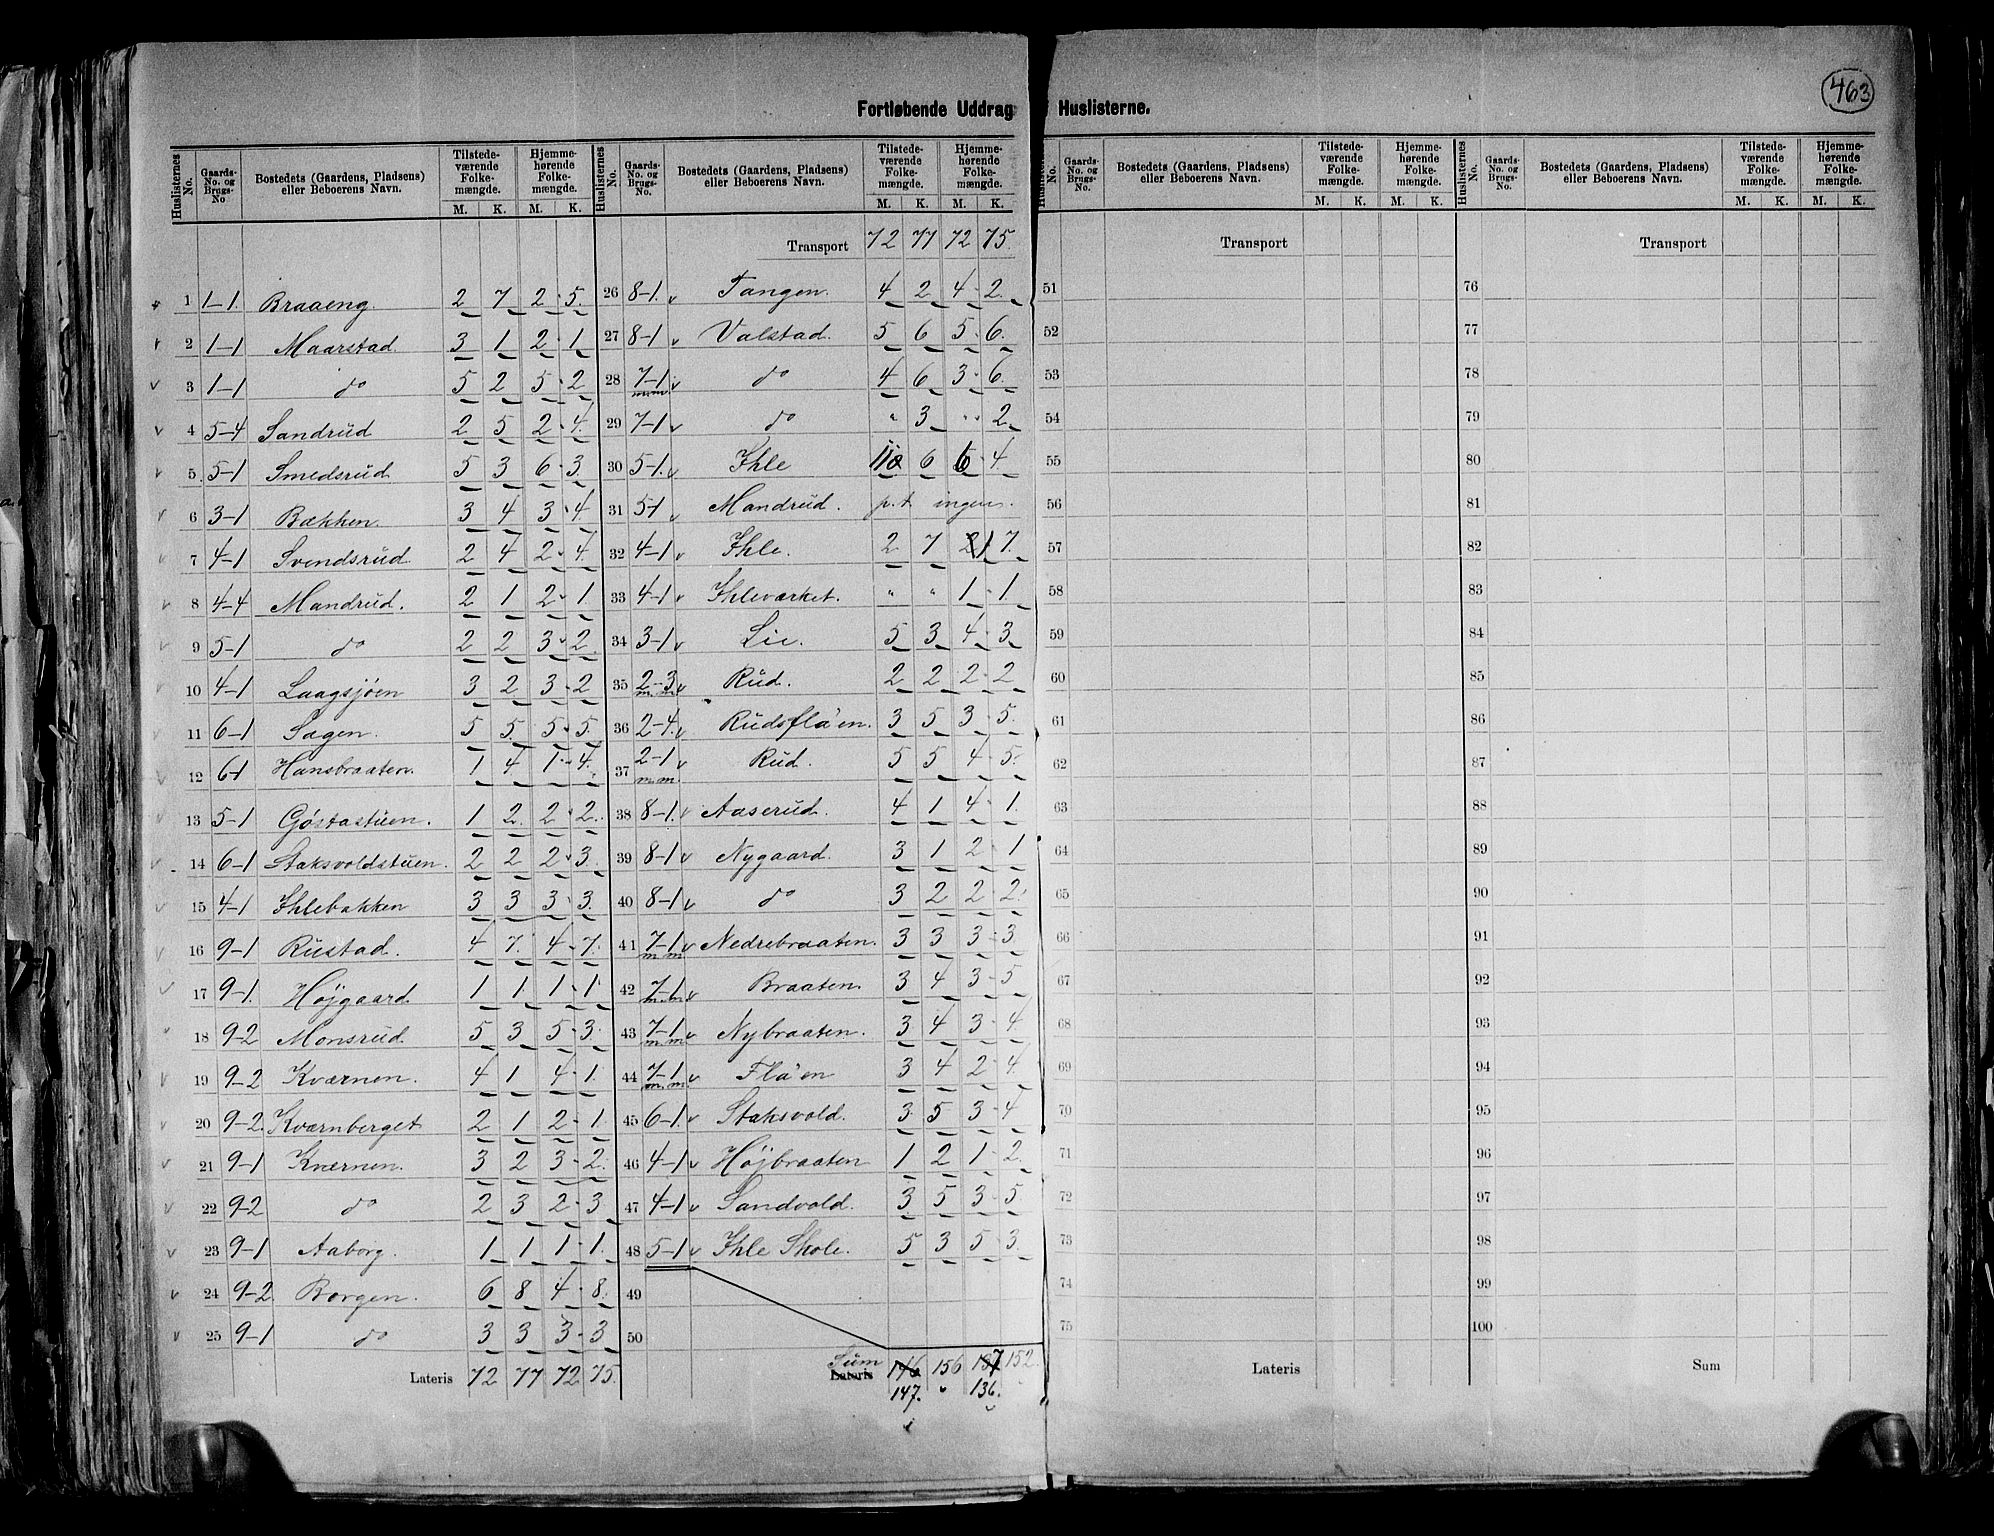 463
Fortløbende Uddrag Huslisterne.
Huslisternes No. Gaards-No. og Brugs-No Bostedets (Gaardens, Pladsens) eller Beboerens Navn. Tilstedeværende Folkemængde. M. K. Hjemmehørende Folkemængde. M. K.
1 1-1. Braaeng 2 7 2 - 5.
2 1-1 Maarstad. 3 1 2 - 1
3 1-1 do 5 2 5 - 2
4 5-4 Sandrud 2 5 2 - 4.
5 5-1 Smedsrud 5 3 6 - 3.
6 3-1 Bækken. 3 4 3 - 4
7 4-1 Svendsrud 2 4 2 - 4.
8 4-4 Mandrud. 2 1 2 - 1.
9 5-1 do 2 2 3 - 2.
10 4-1 Laagsjøen 3 2 3 - 2
11 6-1 Sagen. 5 5. 5 - 5.
12 6-1 Hansbraaten. 1 4 1 - 4.
13 5-1 Gøstastuen. 1 2. 2 - 2.
14 6-1 Staksvoldstuen. 2 2 2 - 3.
15 4-1 Ihlebakken 3 3 3 - 3.
16 9-1 Rustad. 4 7. 4 - 7.
17 9-1. Højgaard 1 1. 1 - 1.
18 9-2 Monsrud. 5 3 5 - 3.
19 9-2 Kværnen. 4 1 4 - 1.
20 9-2. Kværnberget 2 1 2 - 1.
21 9-1 Kværnen. 3 2 3 - 2.
22 9-2 do 2 3 2 - 3.
23 9-1 Aaborg. 1 1 1 - 1.
24 9-2. Borgen. 6 8 4 - 8.
25 9-1 do 3 3 3 - 3
Lateris 72 77 72 75.
Huslisternes No. Gaards-No. og Brugs-No Bostedets (Gaardens, Pladsens) eller Beboerens Navn. Tilstedeværende Folkemængde. M. K. Hjemmehørende Folkemængde. M. K.
Transport 72 77 72 75.
26 8-1. v Tangen. 4 2 4 - 2.
27 8-1 v Valstad. 5 6 5 - 6.
28 7-1. m.m. do 4 6 3 - 6.
29 7-1 v do " 3 " - 2
30 5-1. v Ihle 6 6 - 4.
31 5-1 v Mandrud. p.t. ingen.
32 4-1 v Ihle. 2 7 1 7.
33 4-1 v Ihleværket. " " 1 - 1
34 3-1 v Lie. 5 3 4 - 3
35 2-3 v m.m. Rud. 2 2 2 - 2
36 2-4. v Rudsflåen. 3 5 3 - 5.
37 2-1 m.m. Rud. 5 5 4 - 5.
38 8-1. v Aaserud. 4 1 4 - 1.
39 8-1 v Nygaard. 3 1 2 - 1
40 8-1 v do 3 2 2 - 2.
41 7-1 v m.m. Nedrebraaten. 3 3 3 - 3
42 7-1 v m.m. Braaten. 3 4 3 - 5
43 7-1 v m.m Nybraaten. 3 4 3 - 4.
44 7-1 v m.m Flåen 3 4 2 - 4.
45 6-1. v Staksvold. 3 5 3 - 4
46 4-1 v Højbraaten 1 2 1 - 2.
47 4-1 v Sandvold. 3 5 3 - 5
48 5-1 v Ihle Skole. 5 3 5 - 3.
49
50
Sum
Lateris 146 156 137 152.
147. 136.
No. Gaards-No. og Brugs-No. Bostedets (Gaardens, Pladsens) eller Beboerens Navn. Tilstedeværende Folkemængde. M. K. Hjemmehørende Folkemængde. M. K.
Transport
51
52
53
54
55
56
57
58
59
60
61
62
63
64
65
66
67
68
69
70
71
72
73
74
75
Lateris
Huslisternes No. Gaards-No. og Brugs-No. Bostedets (Gaardens, Pladsens) eller Beboerens Navn. Tilstedeværende Folkemængde. M. K. Hjemmehørende Folkemængde. M. K.
Transport
76
77
78
79
80
81
82
83
84
85
86
87
88
89
90
91
92
93
94
95
96
97
98
99
100
Sum